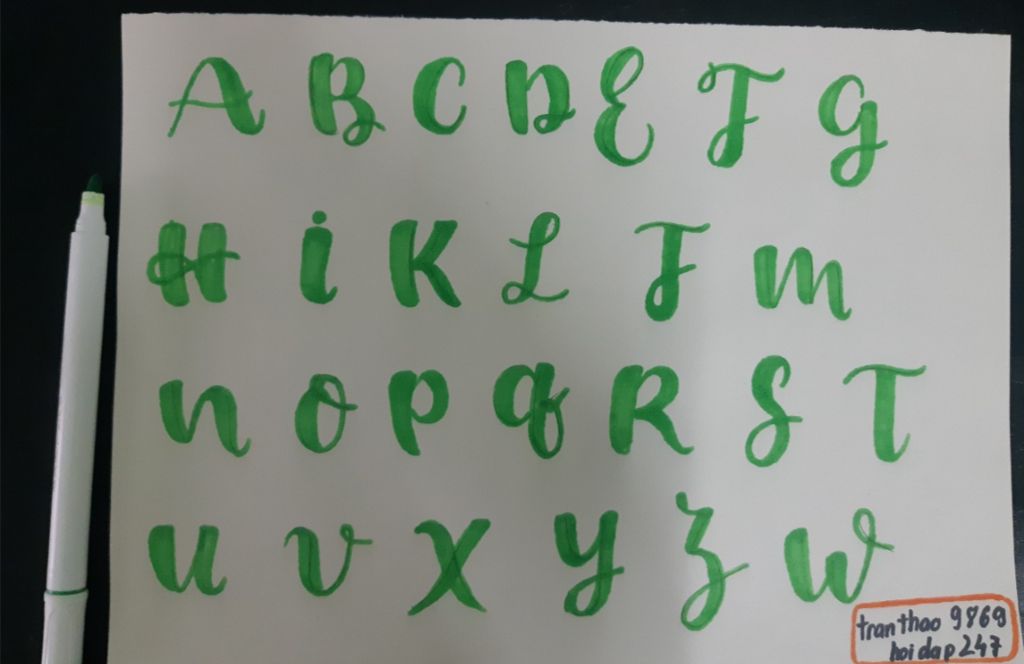 A B C D E F G
H i K L F m
n o P q R S T
u v X y z w
tranthao 9869
hoidap247